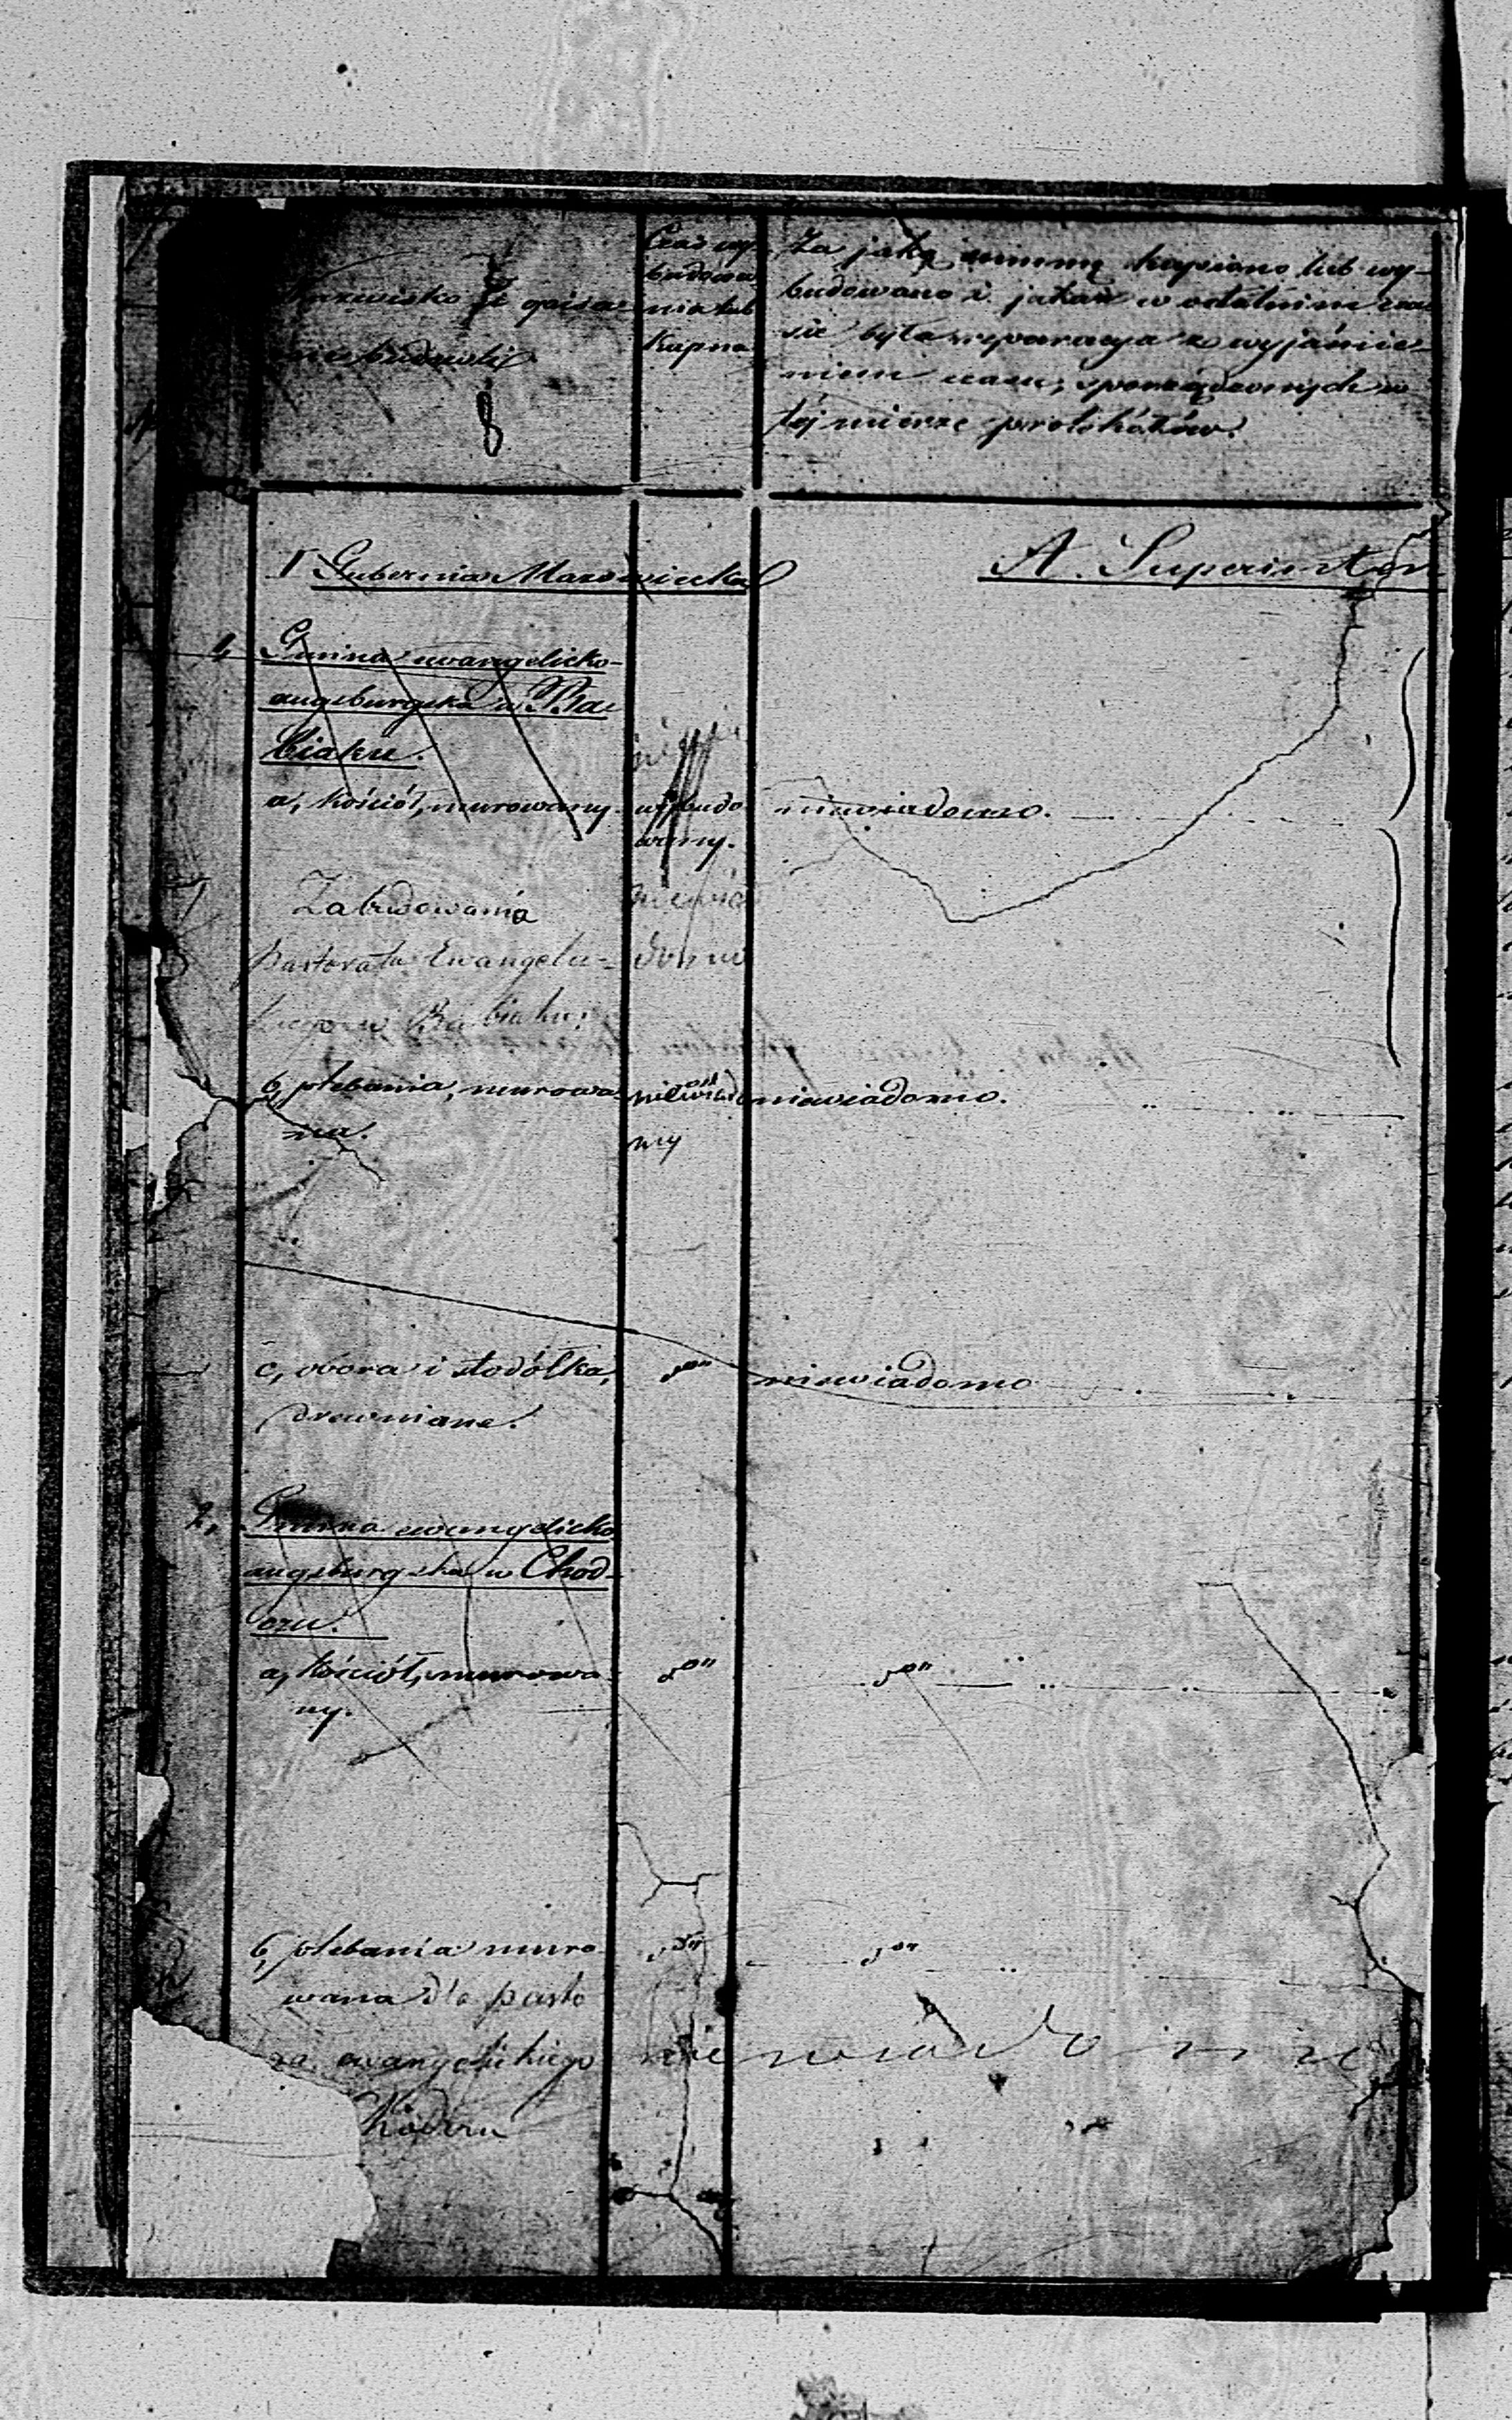 Nazwisko i opisa-
nie budowli
8
Czas wy-
budowa-
nia lub
Kupna
Za jaką summę kupiono lub wy-
budowano i jaka w ostatnim cza-
sie była reparacya z wyjaśnie-
niem czasu, sporządzonych w
téj mierze protokółów.
I Gubernia Mazowiecka
A. Superinten
1, Gmina ewangelicko-
augsburgska w Ba-
biaku.
a, kościół, murowany
wybudo-
wany.
niewiadomo.
Zabudowania
Pastoratu Ewangelic-
kiego w Babiaku:
niewia
domo
b, plebania, murowa-
na.
ny
niewiadomo.
c, obora i stodółka,
drewniane.
d°"
niewiadomo
2, Gmina ewangelicko
augsburgska w Chod-
ozu.
a, kościół, murowa-
ny.
d°"
d°"
b, plebania muro-
wana dla pasto
ra ewangelickiego
d°"
d°"
niewiadome